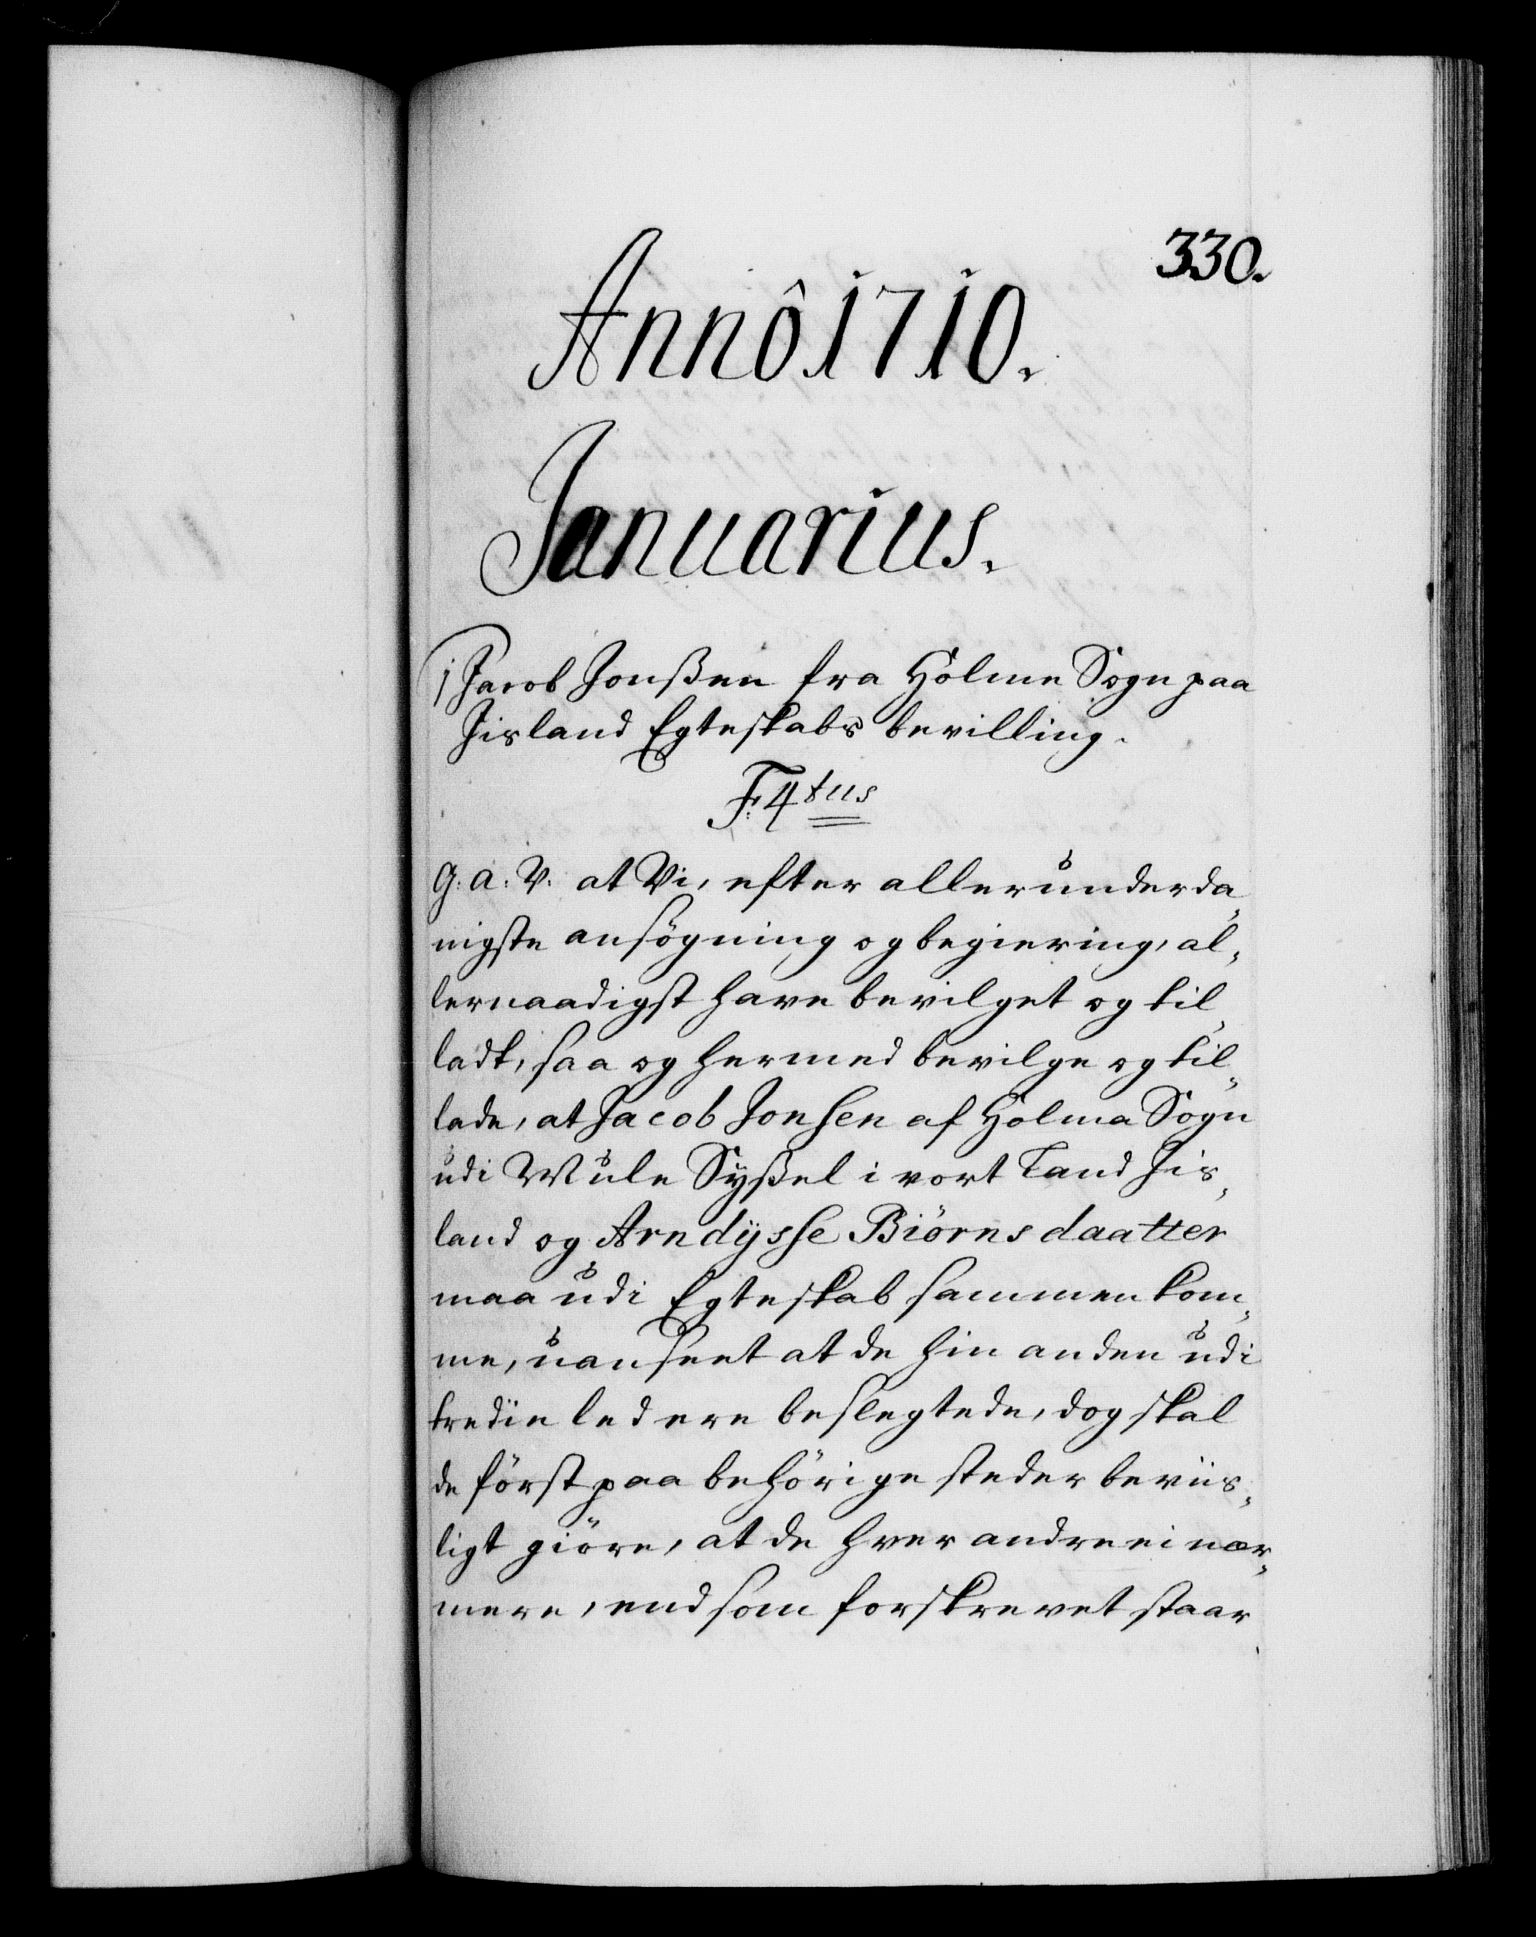 330.
Annô 1710.
Januarius.
1 Jacob Jonßen fra Holme Sogn paa
Jisland Egteskabs bevilling.
F: 4tus
G: A: V: at Vi, efter allerunderda„
nigste ansögning og begiering, al„
lernaadigst have bevilget og til„
ladt, saa og hermed bevilge og til„
lade, at Jacob Jonsen af Holma Sogn
udi Mule Syßel i vort Land Jis„
land og Arndÿsse Biörnsdaatter
maa udi Egteskab sammen kom„
me, uanseet at de hin anden udi
tredie led ere beslegtede, dog skal
de först paa behörige steder beviis„
ligt giöre, at de hver andre ei nær„
mere, end som forskrevet staar